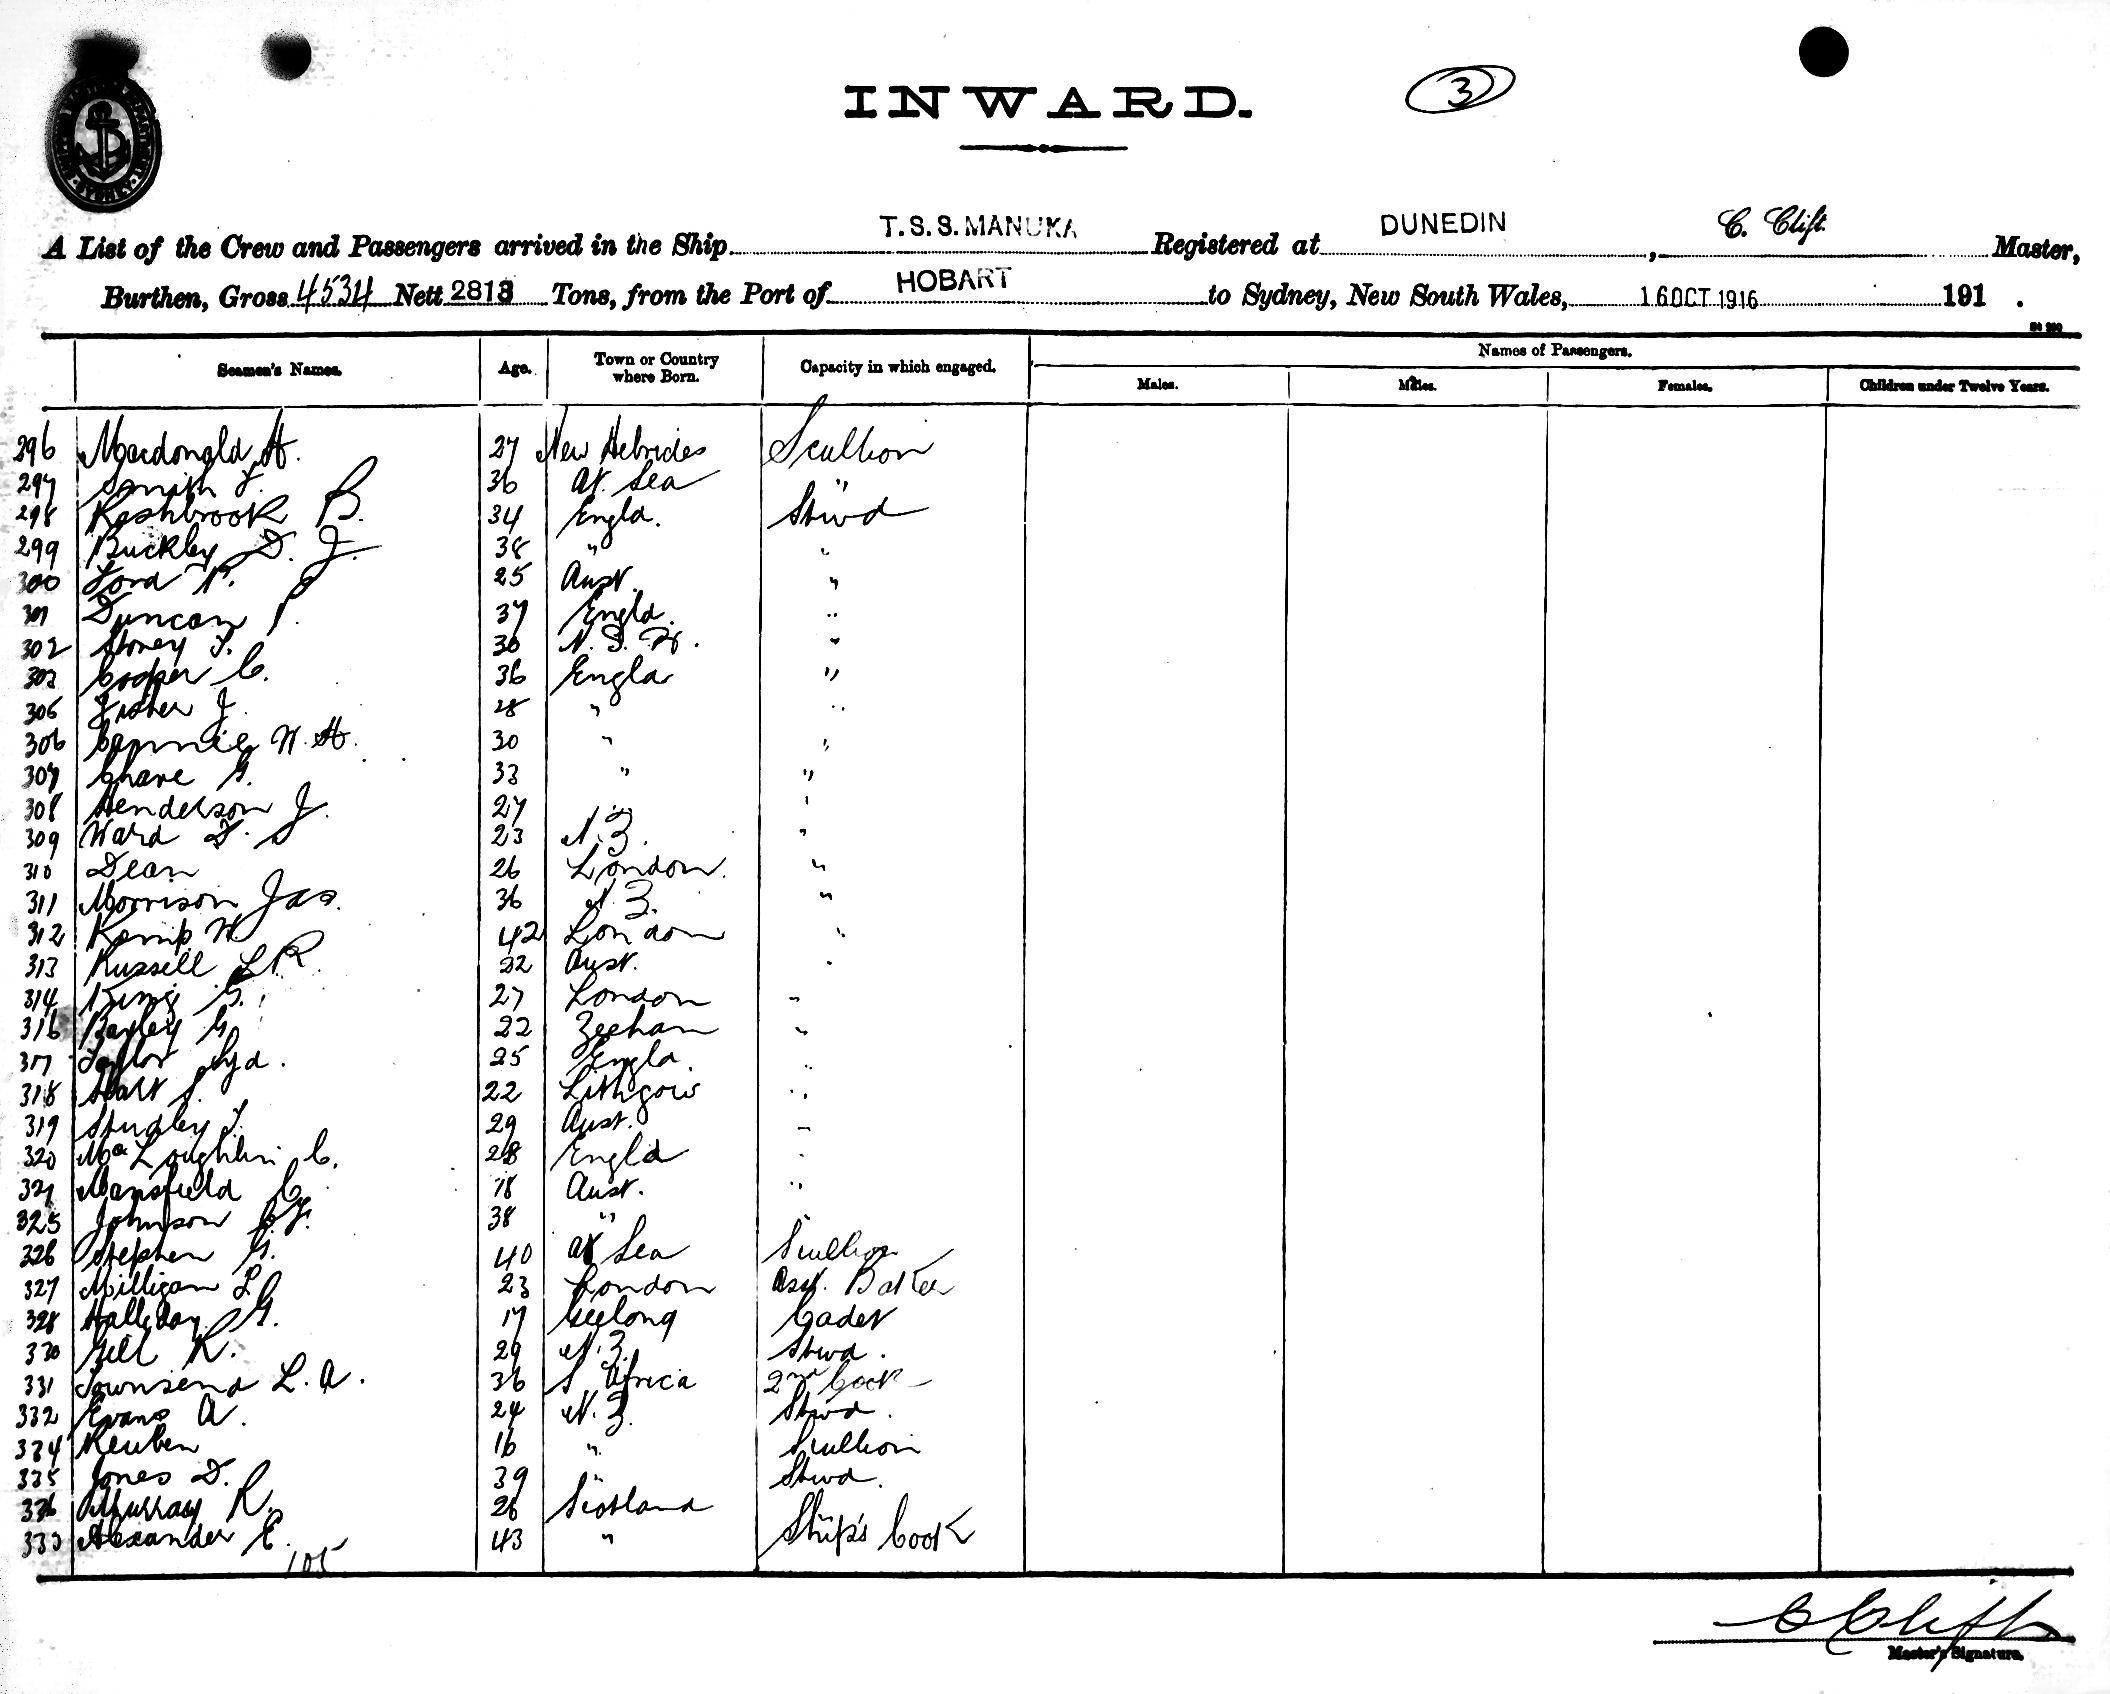 INWARD.
3
A List of the Crew and Passengers arrived in the Ship T.S.S. MANUKA Registered at DUNEDIN, C. Clift. Master,
Burthen, Gross 4534 Nett 2813 Tons, from the Port of HOBART to Sydney, New South Wales, 16 OCT 1916 191 .
Seamen's Names. Age. Town or Country where Born. Capacity in which engaged. Names of Passengers.
Males. Males. Females. Children under Twelve Years.
296 Macdonald H. 27 New Hebrides Scullion
297 Smith F. 36 At Sea "
298 Rashbrook B. 34 Engld. Stwd
299 Buckley D. J. 38 " "
300 Ford P. 25 Aust. "
301 Duncan P. 37 Engld. "
302 Storey F. 30 N.S.W. "
303 Cooper C. 36 Engld "
305 Fisher J. 28 " "
306 W. H. 30 " "
307 Chave G. 33 " "
308 Henderson J. 27 " "
309 Ward F. J. 23 N.Z. "
310 Dean 26 London. "
311 Morrison Jas. 36 N.Z. "
312 Kemp W 42 London "
313 Russell L R. 22 Aust. "
314 King G. 27 London "
316 Bayley G. 22 Zeehan "
317 Taylor Syd. 25 Engld. "
318 Hart S. 22 Lithgow "
319 Studley F. 29 Aust. "
320 McLoughlin C. 28 Engld "
321 Mansfield C. 18 Aust. "
325 Johnson 38 " "
326 Stephen G. 40 At Sea Scullion
327 Milligan L 23 London Asst. Baker
328 Halliday G. 17 Geelong Cadet
330 Gell R. 29 N.Z. Stwd.
331 Townsend L. A. 36 S Africa 2nd Cook
332 Evans A. 24 N.Z. Stwd.
334 Reuben 16 " Scullion
335 Jones D. 39 " Stwd.
336 Murray R. 26 Scotland
333 Alexander E. 43 " Ship's Cook
105
C Clift
Master's Signature.